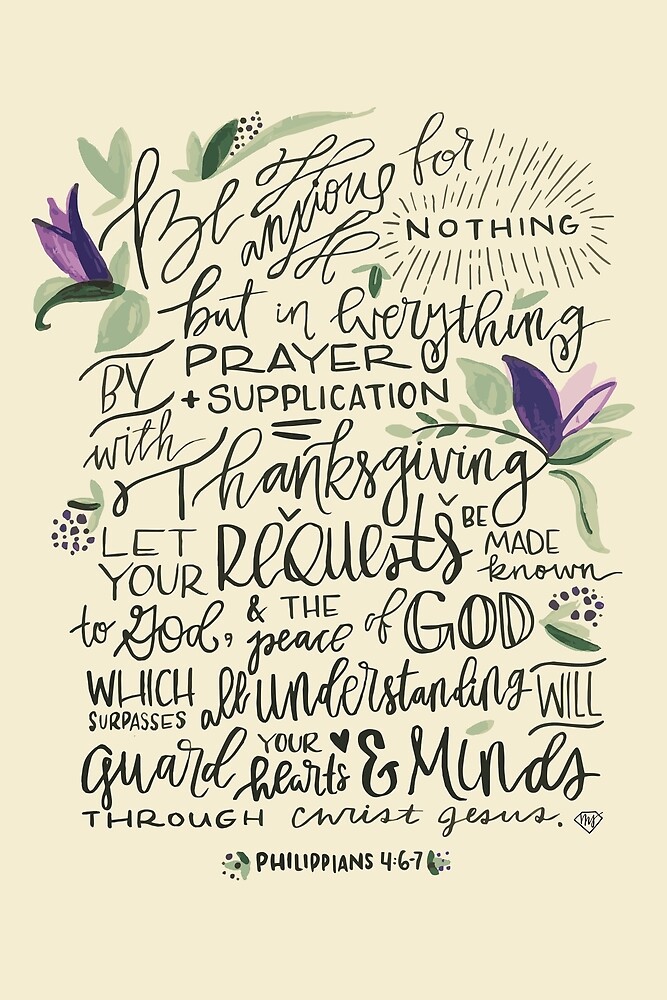 Be anxious for
NOTHING
but in everything
BY PRAYER
+ SUPPLICATION
with
Thanksgiving
LET YOUR REQUESTS BE MADE known
to God, & THE peace of GOD
WHICH SURPASSES all understanding WILL
guard YOUR hearts & Minds
THROUGH Christ Jesus.
PHILIPPIANS 4:6-7